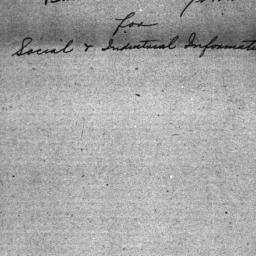 for
Social & Industrial Informat